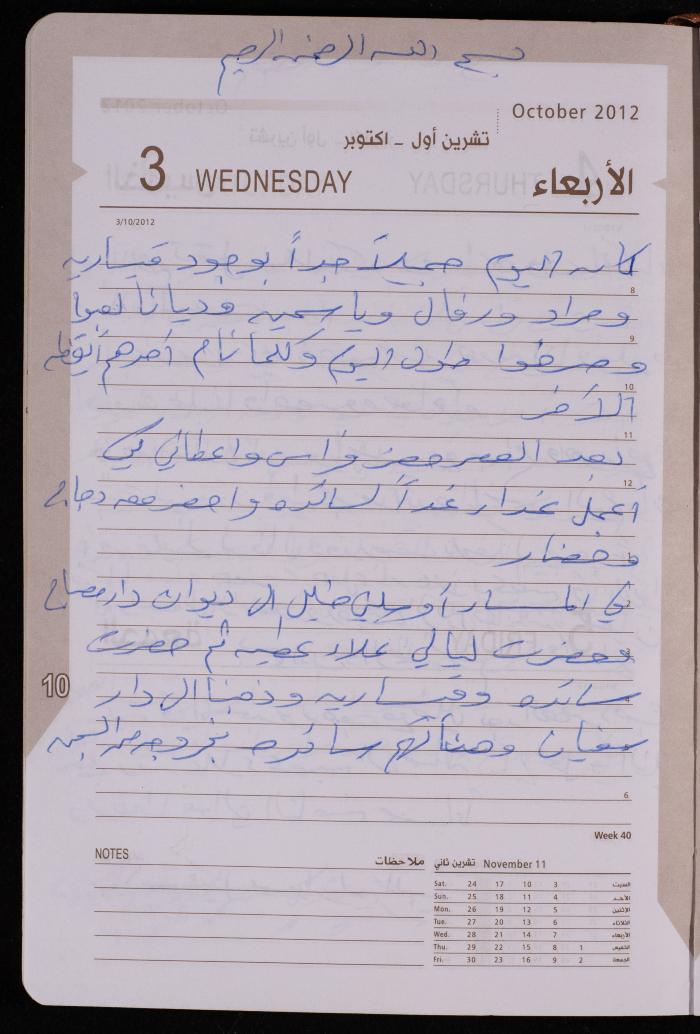 بسم الله الرحمن الرحيم
October 2012
تشرين أول - اكتوبر
3 WEDNESDAY الأربعاء
3/10/2012
كان اليوم جميلاً جداً بوجود قيساريه
8
ومراد ورفال وياسمين وديانا لعبوا
9
ومرحوا طول اليوم وكلما نام أحدهم أيقظه
10
الآخر
11
بعد العصر حضر فراس واعطاني كي
12
أعمل غداء غداً لسائده واحضر معه دجاج
1
وخضار
في المساء أوصلني خليل الى ديوان دار
2
فحضرت ليالي علاء عطيه ثم حضرت
3
10
سائده وقيساريه وذهبنا الى دار
4
سفيان وهنأتهم سائده بخروجه من السجن
6
Week 40
NOTES ملاحظات
November 11 تشرين ثاني
Sat. 24 17 10 3 السبت
Sun. 25 18 11 4 الأحد
Mon. 26 19 12 5 الإثنين
Tue. 27 20 13 6 الثلاثاء
Wed. 28 21 14 7 الأربعاء
Thu. 29 22 15 8 1 الخميس
Fri. 30 23 16 9 2 الجمعة